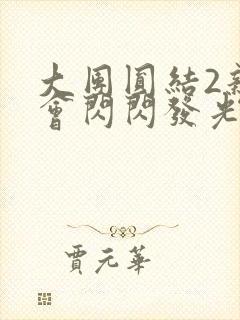 大團圓結2
會閃閃發光
賈元華